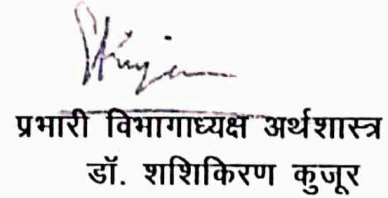 प्रभारी विभागाध्यक्ष अर्थशास्त्र
डॉ. शशिकिरण कुजूर